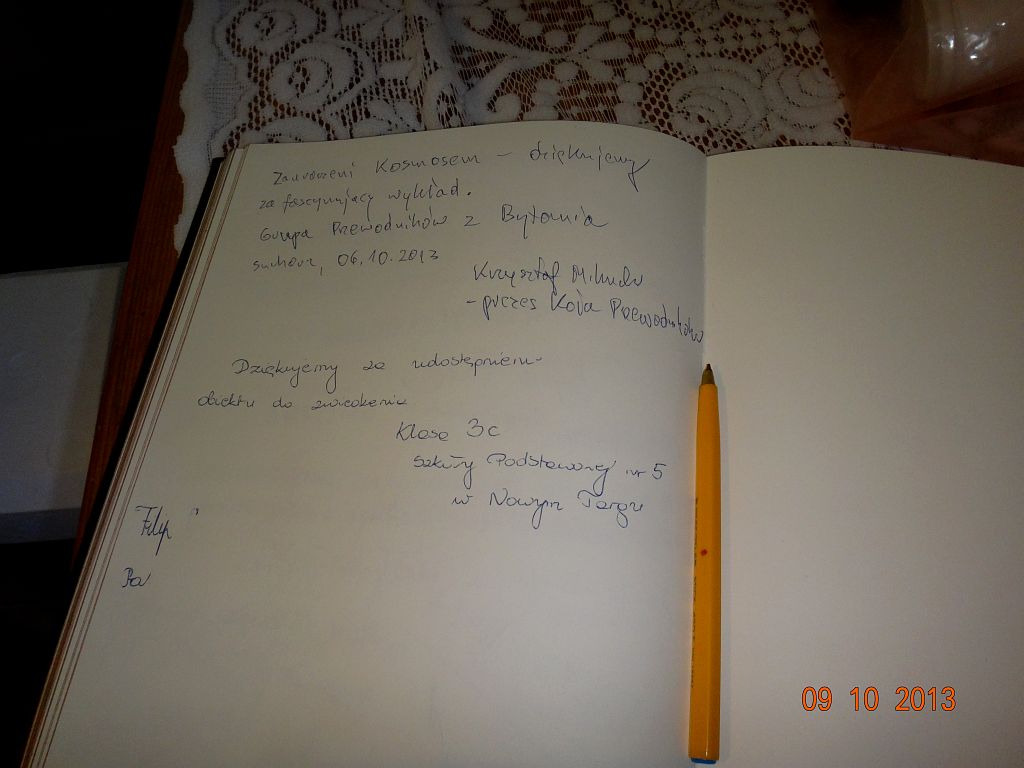 Zauroczeni Kosmosem – dziękujemy
za fascynujący wykład.
Grupa Przewodników z Bytomia
Suchora, 06.10.2013
Krzysztof
- prezes Koła Przewodników
Dziękujemy za udostępnienie
obiektu do zwiedzenia
Klasa 3c
Szkoły Podstawowej nr 5
w Nowym Targu
Filip
09 10 2013